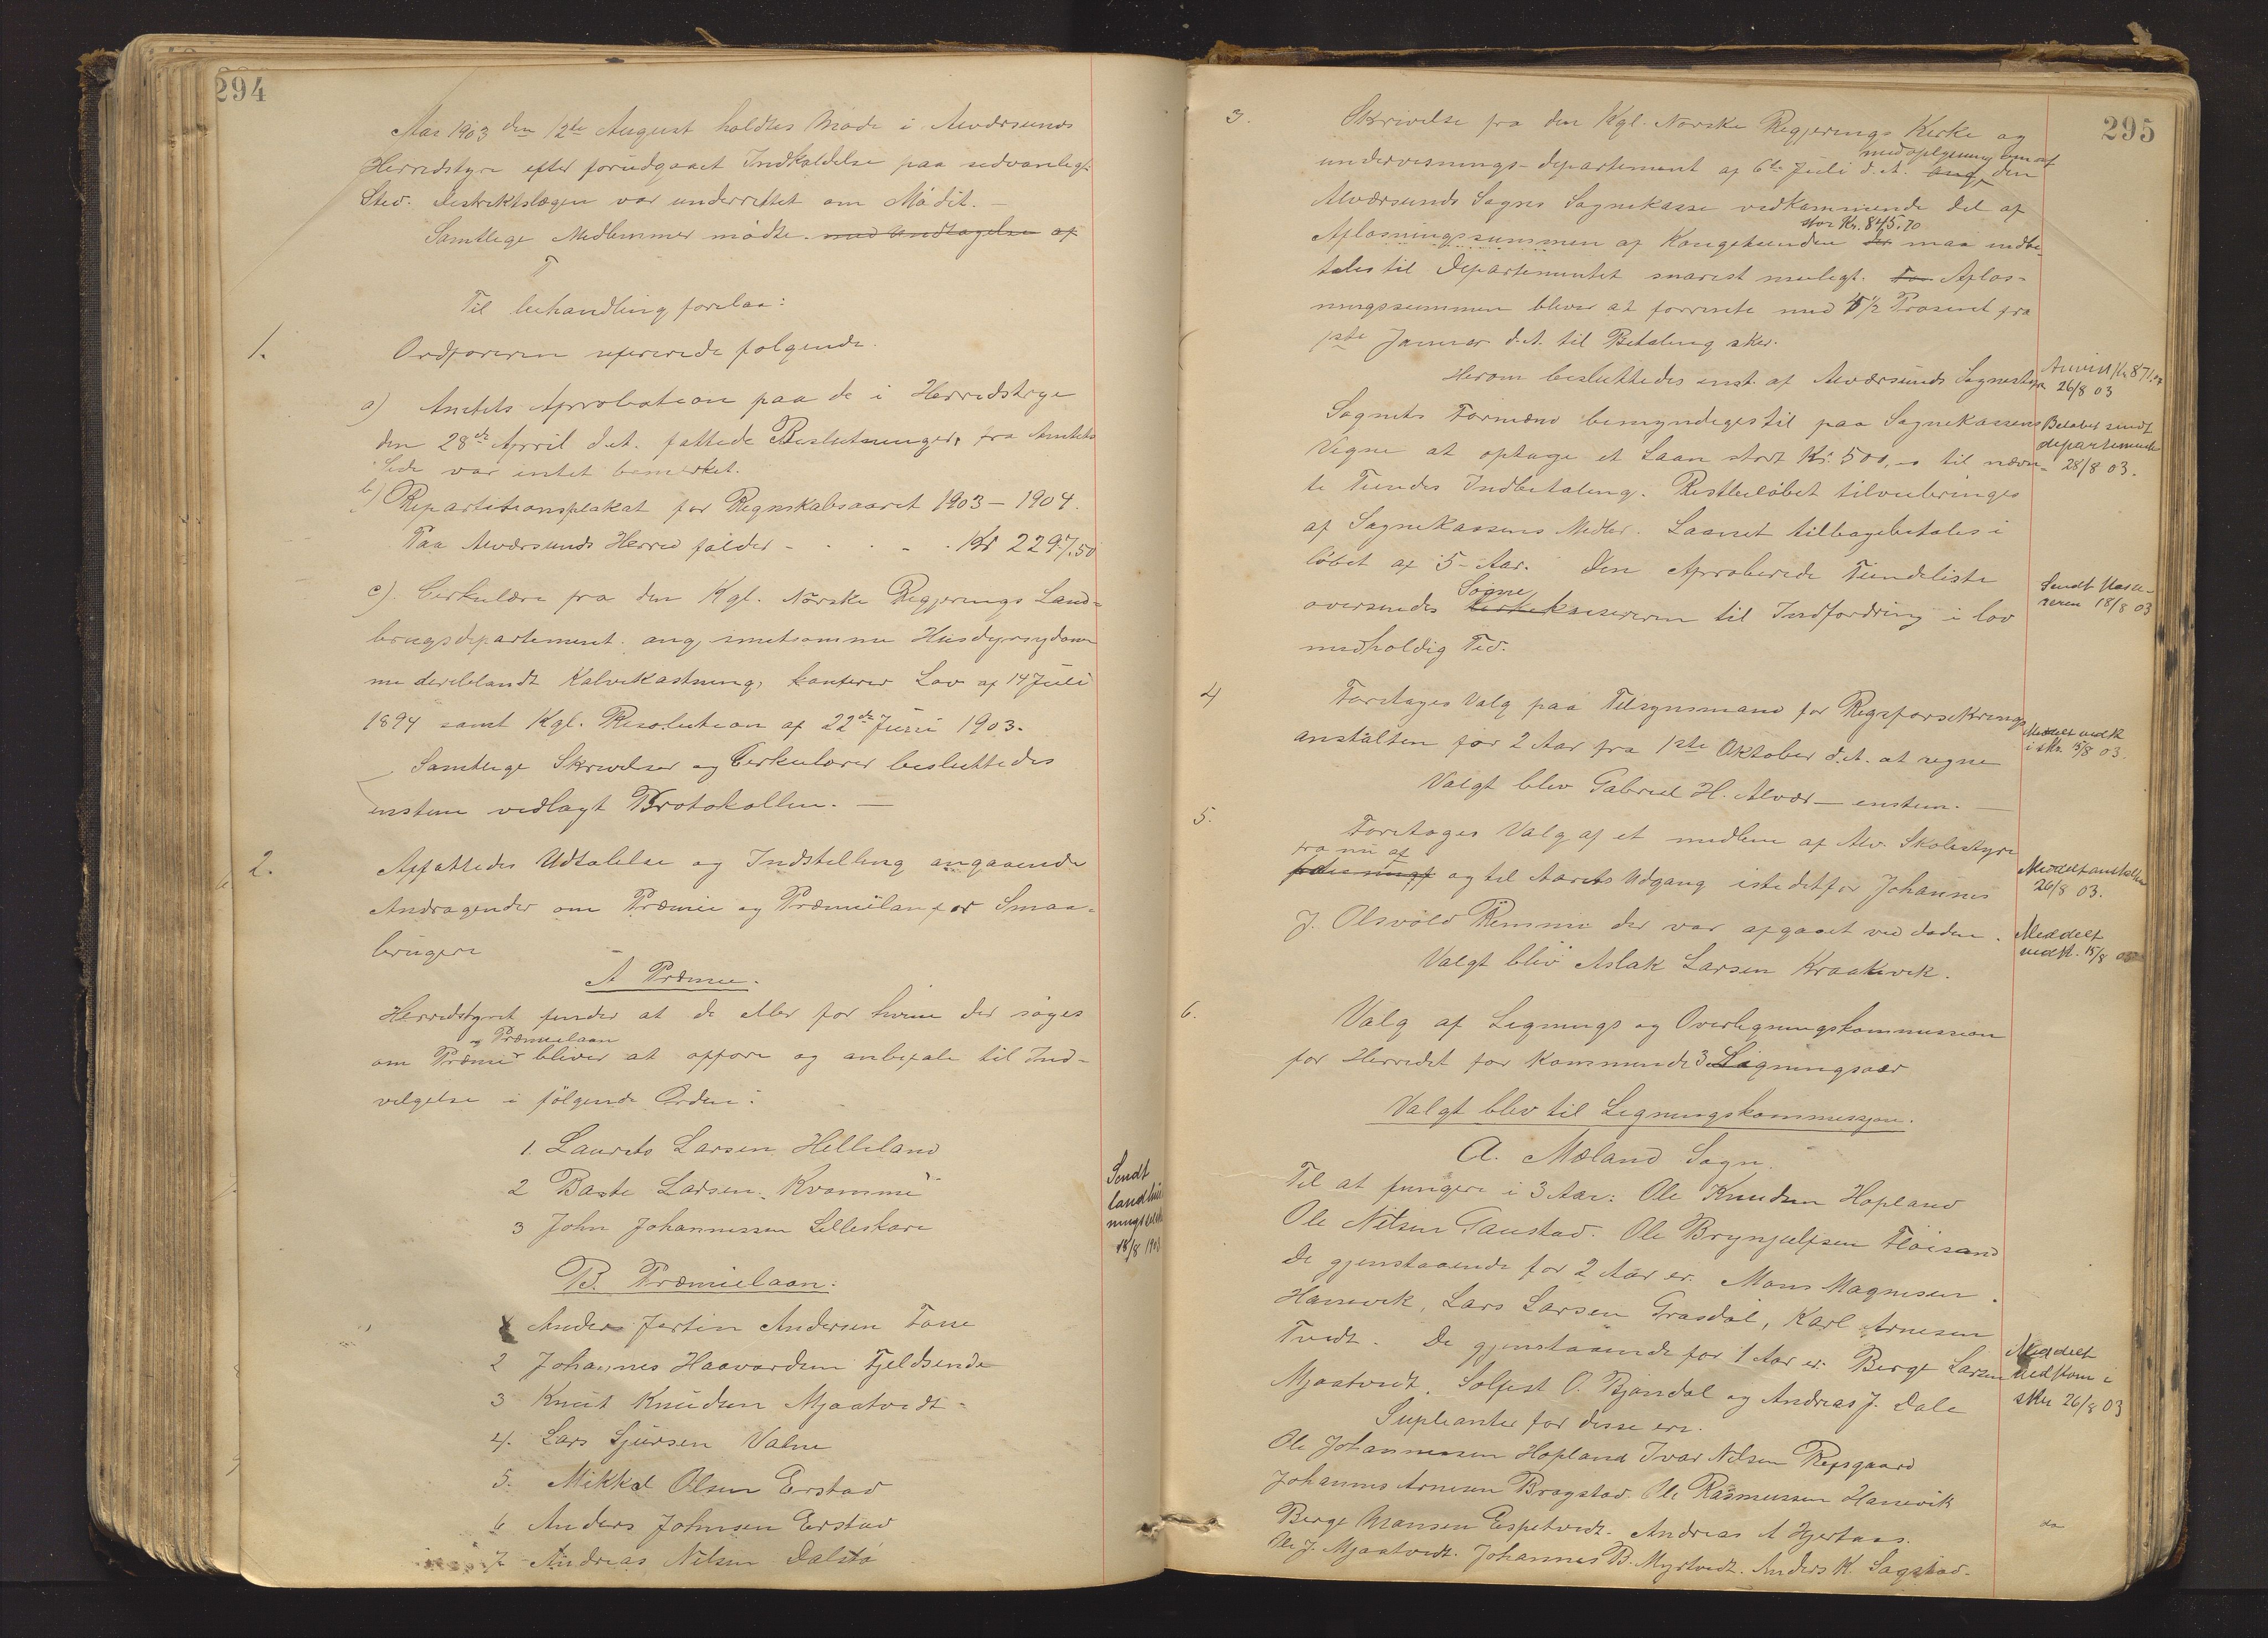 294
Aar 1903 den 12te August holdtes Møde i Alværsunds
Herredstyre efter forudgaaet Indkaldelse paa sedvanlegt
Sted. Distriktslægen var underrettet om Mødet. —
Samtlege Medlemmer mødte. med Undtagelse af
Til behandling forelaa:
1. Ordføreren refererede følgende.
a) Amtets Aprobation paa de i Herredstyre
den 28de April d.A. fattede Beslutninger, fra Amtets
Side var intet bemærket.
b) Repartitionsplakat for Regnskabsaaret 1903 - 1904.
Paa Alværsunds Herred falder - . . - . Kr 2297.50
c). Cirkulære fra den Kgl. Norske Regjerings Land=
brugsdepartement ang. smetsomme Husdyrsygdom
me deriblandt Kalvekastning, konferer Lov af 14 Juli
1894 samt Kgl. Resolution af 22de Juni 1903.
Samtlege Skrivelser og Cirkulærer besluttedes
enstem vedlagt Protokollen. —
2. Affattedes Udtalelse og Indstilling angaaende
Andragender om Præmie og Præmielan for Smaa=
brugere
A Præmie.
Herredstyret finder at de eller for hvem der søges
og Præmielaan
om Præmie bliver at opføre og anbefale til Ind-
velgelse i følgende Orden:
1. Laurits Larsen Helleland
2 Baste Larsen Kvamme
3 John Johannessen Lilleskare
Sendt
landhus
nings
18/8 1903
B. Præmielaan.
1 Anders Jertin Andersen Tosse
2 Johannes Haavardsen Fjeldsende
3 Knut Knudsen Mjaatvedt
4. Lars Sjursen Valne
5. Mikkel Olsen Erstad
6 Anders Johnsen Erstad
7 Andreas Nilsen Dalstø
295
3. Skrivelse fra den Kgl. Norske Regjerings Kirke og
med oplysning om at
undervisnings-departement af 6te Juli d.A. ang. den
Alværsunds Sogns Sognekasse vedkommende del af
stor Kr. 845.70
Afløsningssummen af Kongetienden der maa indbe-
tales til Departementet snarest mulegt. Afløs-
ningssummen bliver at forrente med 4 1/2 Prosent fra
1ste Januar d.A. til Betaling sker.
Herom besluttedes enst. af Alværsunds Sognestyre
Anvist Kr 871.
26/8 03
Sognets Formænd bemyndeges til paa Sognekassens
Vegne at optage et Laan stort Kr. 500,00 til nævn-
Beløbet sendt
departementet
28/8 03.
te Tiendes Indbetaling. Restbeløbet tilveibringes
af Sognekassens Midler. Laanet tilbagebetales i
løbet af 5- Aar. Den Aproberede Tiendeliste
Sogne
oversendes Kirkekassereren til Indfordring i lov
medholdig Tid.
Sendt Kasse-
reren 18/8 03
4 Foretages Valg paa Tilsynsmand for Regsforsikrings
anstalten for 2 Aar fra 1ste Oktober d.A. at regne
Meddelt vedk
i skr. 15/8 03.
Valgt blev Gabriel H. Alvær — enstem. —
5. Foretoges Valg af et medlem af Alv. Skolestyre
fra nu af
og til Aarets Udgang istedetfor Johannes
J. Olsvold Remme der var afgaaet ved døden.
Meddelt
26/8 03.
Valgt blev Aslak Larsen Kraakevik.
Meddelt
vedk. 15/8 03
6. Valg af Lignings og Overligningskommission
for Herredet for kommende 3 Ligningsaar
Valgt blev til Ligningskommissjon.
A. Mæland Sogn.
Til at fungere i 3 Aar: Ole Knudsen Hopland
Ole Nilsen Gaustad. Ole Brynjulfsen Fløisand
De gjenstaaende for 2 Aar er. Mons Magnesen
Hanevik, Lars Larsen Grasdal, Karl Arnesen
Tvedt. De gjenstaaende for 1 Aar er. Berge Larsen
Mjaatvedt. Solfest O. Bjøndal og Andreas J. Dale
Meddelt
vedkom i
skr 26/8 03
Suplianter for disse ere.
Ole Johannessen Hopland Ivar Nilsen Repsgaard
Johannes Arnesen Brogstad. Ole Rasmussen Hanevik
Berge Monsen Espetvedt. Andreas A Hjertaas.
Ole J. Mjaatvedt. Johannes B. Myrtvedt. Anders K. Sagstad.